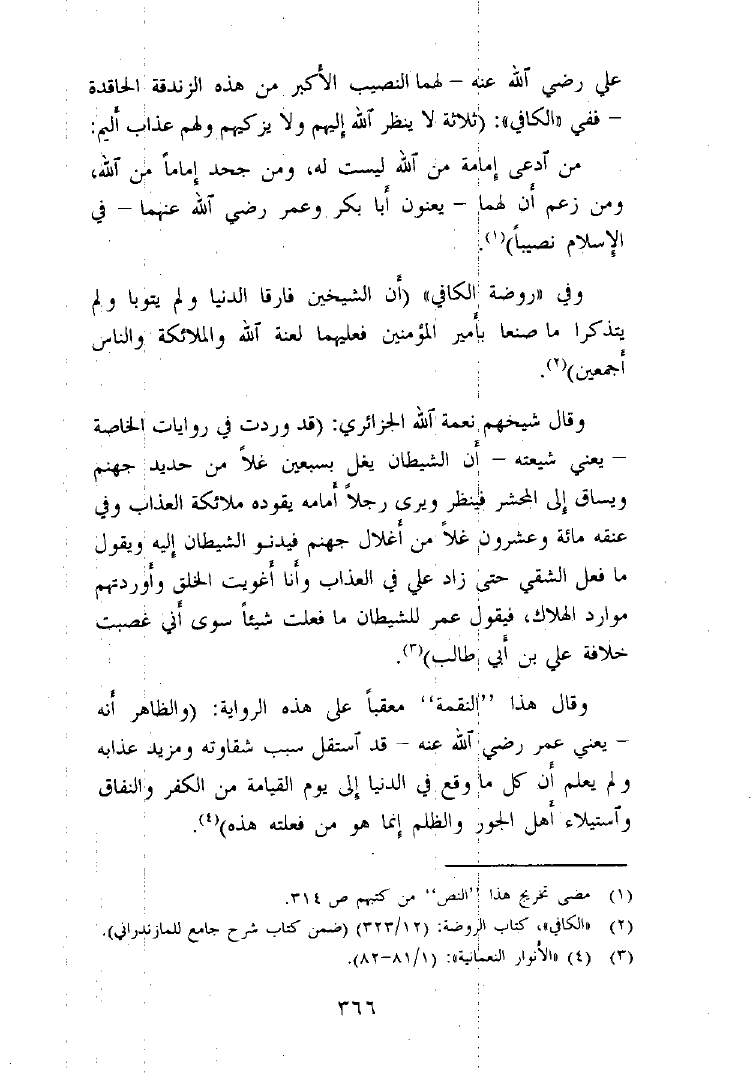 علي رضي ٱلله عنه – لهما النصيب الأكبر من هذه الزندقة الحاقدة
– ففي «الكافي»: (ثلاثة لا ينظر ٱلله إليهم ولا يزكيهم ولهم عذاب أليم:
من ٱدعى إمامة من ٱلله ليست له، ومن جحد إماماً من ٱلله،
ومن زعم أن لهما – يعنون أبا بكر وعمر رضي ٱلله عنهما – في
الإسلام نصيباً)(١).
وفي «روضة الكافي» (أن الشيخين فارقا الدنيا ولم يتوبا ولم
يتذكرا ما صنعا بأمير المؤمنين فعليهما لعنة ٱلله والملائكة والناس
أجمعين)(٢).
وقال شيخهم نعمة ٱلله الجزائري: (قد وردت في روايات الخاصة
– يعني شيعته – أن الشيطان يغل بسبعين غلاً من حديد جهنم
ويساق إلى المحشر فينظر ويرى رجلاً أمامه يقوده ملائكة العذاب وفي
عنقه مائة وعشرون غلاً من أغلال جهنم فيدنو الشيطان إليه ويقول
ما فعل الشقي حتى زاد علي في العذاب وأنا أغويت الخلق وأوردتهم
موارد الهلاك، فيقول عمر للشيطان ما فعلت شيئاً سوى أني غصبت
خلافة علي بن أبي طالب)(٣).
وقال هذا ‘‘النقمة‘‘ معقباً على هذه الرواية: (والظاهر أنه
– يعني عمر رضي ٱلله عنه – قد ٱستقل سبب شقاوته ومزيد عذابه
ولم يعلم أن كل ما وقع في الدنيا إلى يوم القيامة من الكفر والنفاق
وٱستيلاء أهل الجور والظلم إنما هو من فعلته هذه)(٤).
(١) مضى تخريج هذا ‘‘النص‘‘ من كتبهم ص ٣١٤.
(٢) «الكافي»، كتاب الروضة: (٣٢٣/١٢) (ضمن كتاب شرح جامع للمازندراني).
(٣) (٤) «الأنوار النعمانية»: (٨١/١–٨٢).
٣٦٦